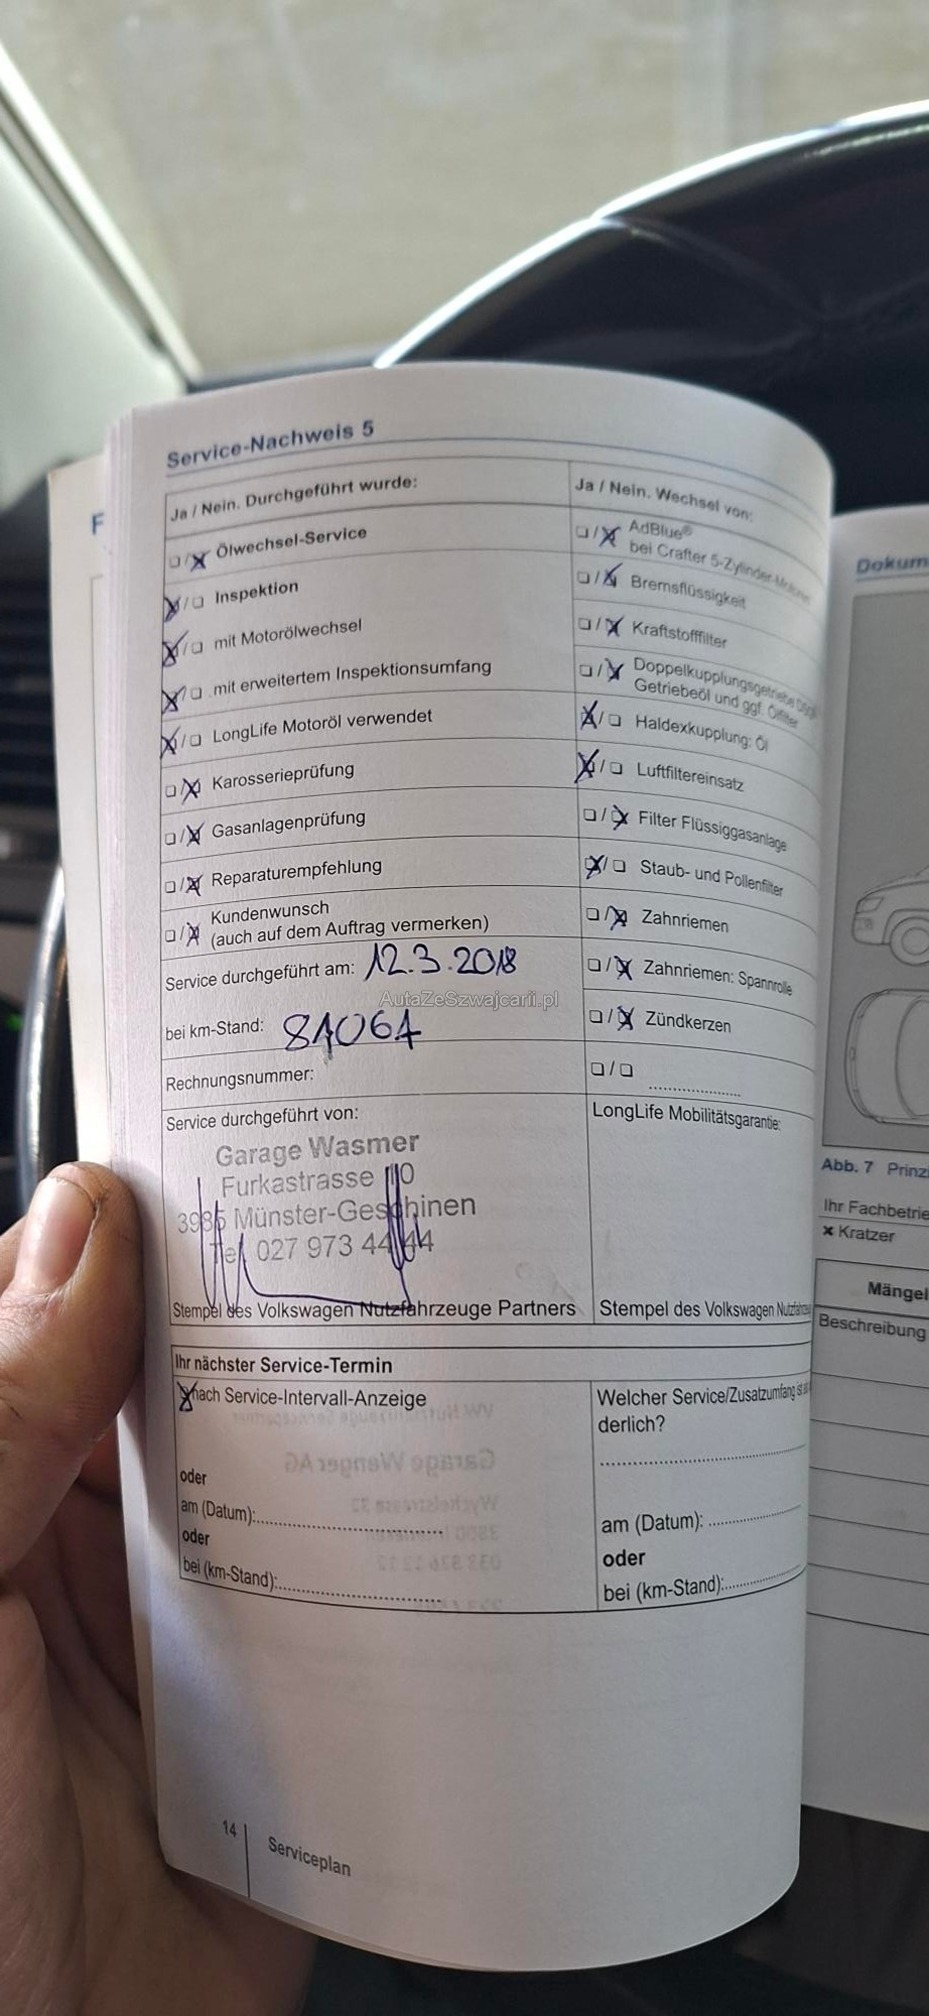 Service-Nachweis 5
Ja / Nein. Durchgeführt wurde:
❏/❏ Ölwechsel-Service
❏/❏ Inspektion
❏/❏ mit Motorölwechsel
❏/❏ mit erweitertem Inspektionsumfang
❏/❏ LongLife Motoröl verwendet
❏/❏ Karosserieprüfung
❏/❏ Gasanlagenprüfung
❏/❏ Reparaturempfehlung
❏/❏ Kundenwunsch
(auch auf dem Auftrag vermerken)
Service durchgeführt am: 12.3.2018
AutaZeSzwajcarii.pl
bei km-Stand: 81061
Rechnungsnummer:
Service durchgeführt von:
Garage Wasmer
Furkastrasse
3985 Münster-Geschinen
Tel 027 973 44 44
Stempel des Volkswagen Nutzfahrzeuge Partners
Ja / Nein. Wechsel von:
❏/❏ AdBlue®
bei Crafter 5-Zylinder-Motoren
❏/❏ Bremsflüssigkeit
❏/❏ Kraftstofffilter
❏/❏ Doppelkupplungsgetriebe
Getriebeöl und ggf. Ölfilter
❏/❏ Haldexkupplung: Öl
❏/❏ Luftfiltereinsatz
❏/❏ Filter Flüssiggasanlage
❏/❏ Staub- und Pollenfilter
❏/❏ Zahnriemen
❏/❏ Zahnriemen: Spannrolle
❏/❏ Zündkerzen
❏/❏ ....................
LongLife Mobilitätsgarantie:
Stempel des Volkswagen
Ihr nächster Service-Termin
nach Service-Intervall-Anzeige
oder
am (Datum):
oder
bei (km-Stand):
Welcher Service/Zusatzumfang ist
derlich?
am (Datum):
oder
bei (km-Stand):
14
Serviceplan
F
Dokum
Abb. 7 Prinz
Ihr Fachbetrie
× Kratzer
Mängel
Beschreibung